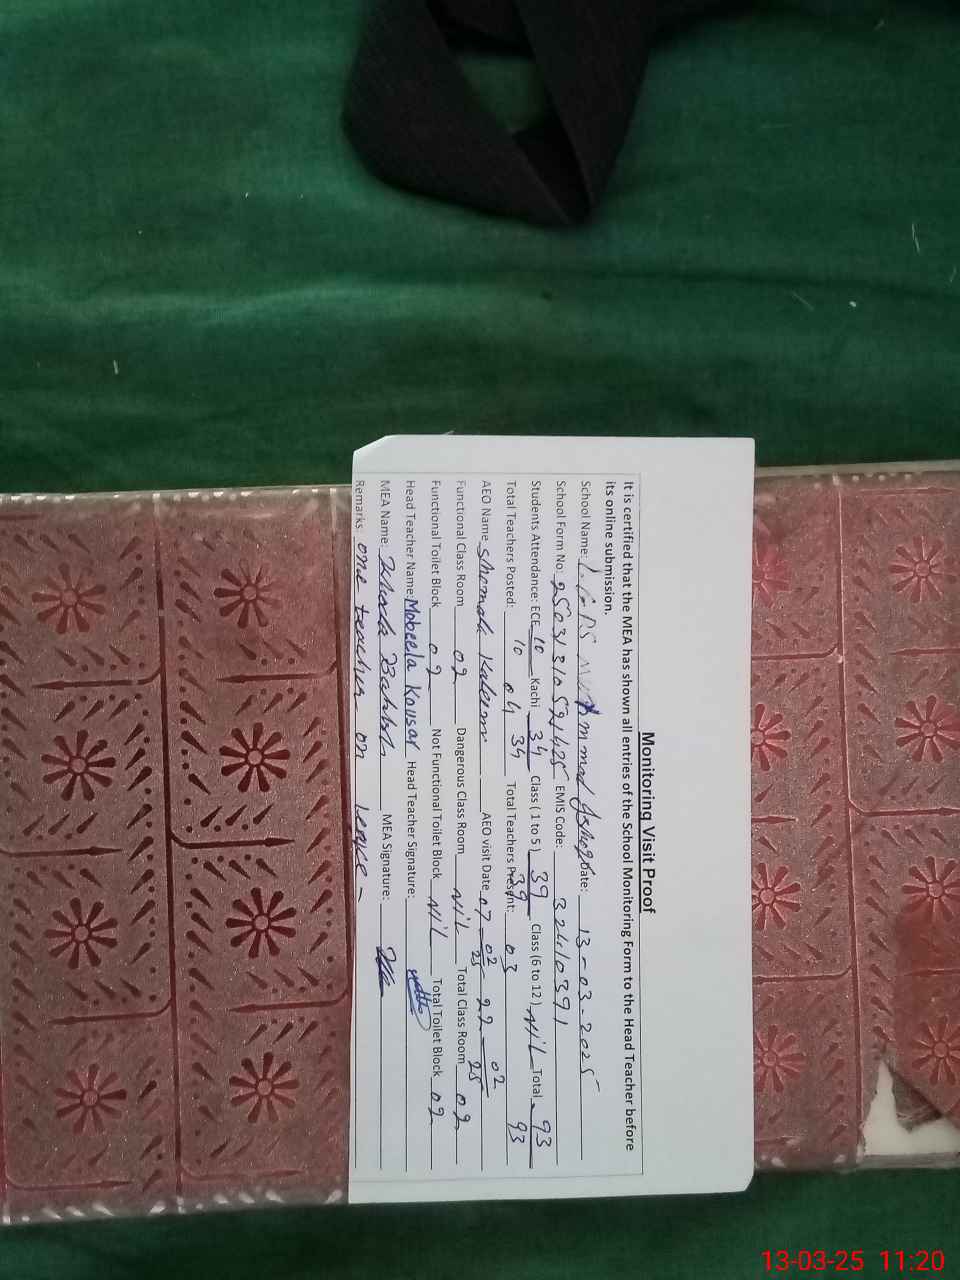 Monitoring Visit Proof
It is certified that the MEA has shown all entries of the School Monitoring Form to the Head Teacher before
its online submission.
School Name: Date: 13-03-2025
School Form No: EMIS Code: 32410391
Students Attendance: ECE 10 Kachi 34 Class ( 1 to 5 ) 39 Class (6 to 12) Nil Total 93
10 34 39 93
Total Teachers Posted: 04 Total Teachers Present: 03
AEO Name Kaleem AEO visit Date 07-02-25 22-02-25
Functional Class Room 02 Dangerous Class Room Nil Total Class Room 02
Functional Toilet Block 02 Not Functional Toilet Block Nil Total Toilet Block 02
Head Teacher Name: Mobeela Kousar Head Teacher Signature:
MEA Name: MEA Signature:
Remarks one teacher on leave -
13-03-25 11:20